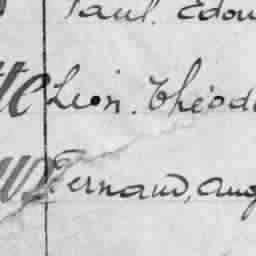 Paul. Edou
Léon. Théodo
Fernand, Aug